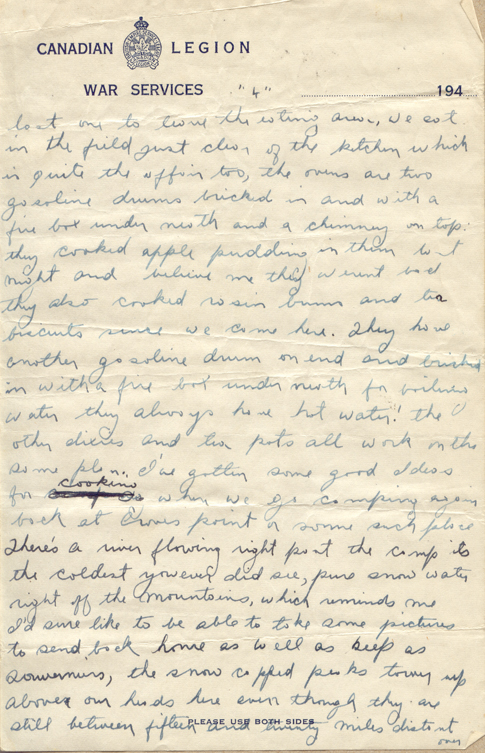 CANADIAN LEGION
WAR SERVICES "4" 194
last one to leave the eating area, we eat
in the field just clear of the kitchen which
is quite the affair too, the ovens are two
gasoline drums bricked in and with a
fire box under neath and a chimney on top.
they cooked apple pudding in them last
night and believe me they werent bad
they also cooked rasin buns and tea
biscuits since we came here. They have
another gasoline drum on end and bricked
in with a fire box under neath for boiling
water they always have hot water! the
other dixies and tea pots all work on the
same plan. I've gotten some good ideas
for cooking when we go camping again
back at Crows point or some such place
There's a river flowing right past the camp its
the coldest you ever did see, pure snow water
right off the mountains, which reminds me
I'd sure like to be able to take some pictures
to send back home as well as keep as
souveniers, the snow capped peaks tower up
above our heads here even though they are
still between fifteen and twenty miles distant
PLEASE USE BOTH SIDES
over